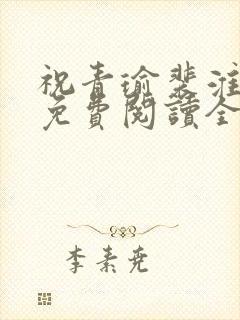 祝青瑜裴淮
免費閱讀全
李素堯